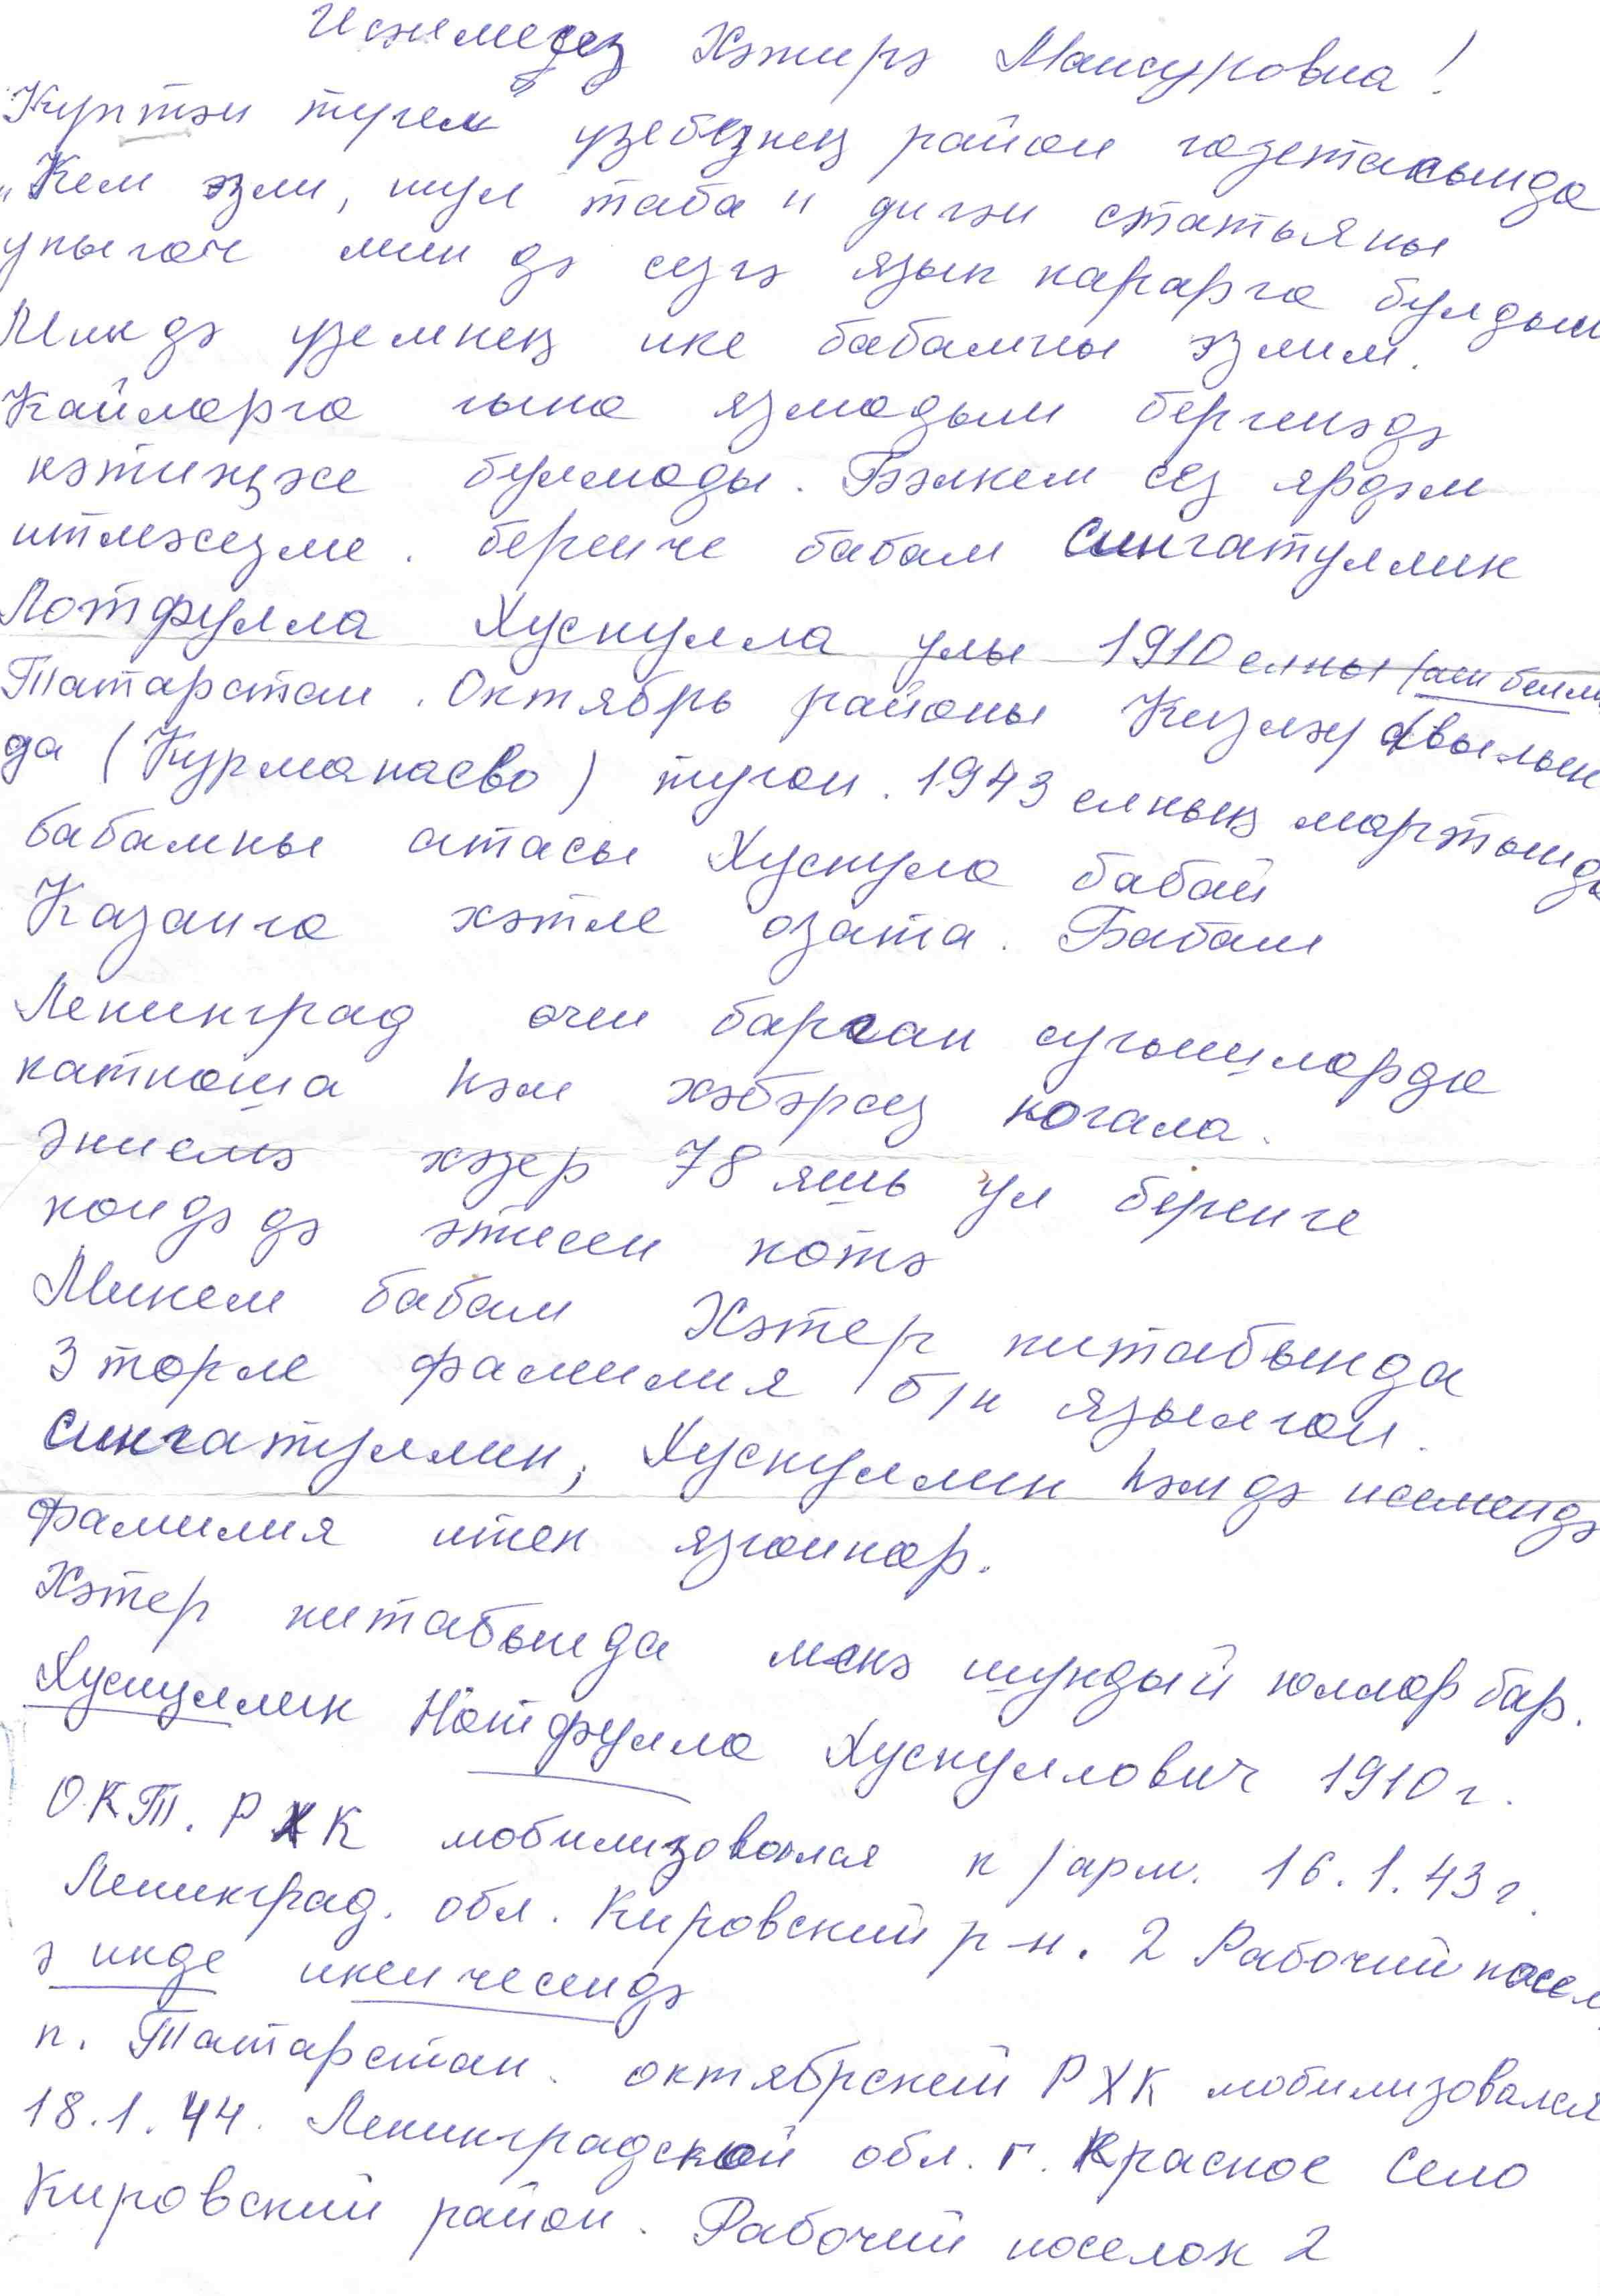 Исәнмесез Хәжирә Мансуровна!
Куптән тугел узебезнең район газетасында
"Кем эзли, шул таба" дигән статьяны
укыгач мин дә сезгә язып карарга булдым
Мин дә уземнең ике бабамны эзлим.
Кайларга гына язмадым бернәдә
нәтиҗәсе булмады. Бәлкем сез ярдәм
итмәсезме. беренче бабам Сингатуллин
Лотфулла Хуснулла улы 1910 елны
Татарстан. Октябрь районы Кизләу авылын
да (Курманаево) туган. 1943 елның мартында
бабамны атасы Хуснула бабай
Казанга хәтле озата. Бабам
Ленинград очен барган сугышларда
катнаша һәм хәбәрсез югала.
Әниемә хәзер 78 яшь ул беренге
кондә дә әтисен котә
Минем бабам Хәтер китабында
3 торле фамилия б/н язылган.
Сингатуллин, Хуснуллин һәм дә исемендә
фамилия итеп язганнар.
Хәтер китабында менә шундый юллар бар.
Хуснуллин Нотфулла Хуснуллович 1910 г.
ОКТ. РХК мобилизовался к/арм. 16.1.43 г.
Ленинград. обл. Кировский р-н. 2 Рабочий посел
ә инде икенчесендә
п. Татарстан. октябрский РХК мобилизовался
18.1.44. Ленинградской обл. г. Красное Село
Кировский район. Рабочий поселок 2